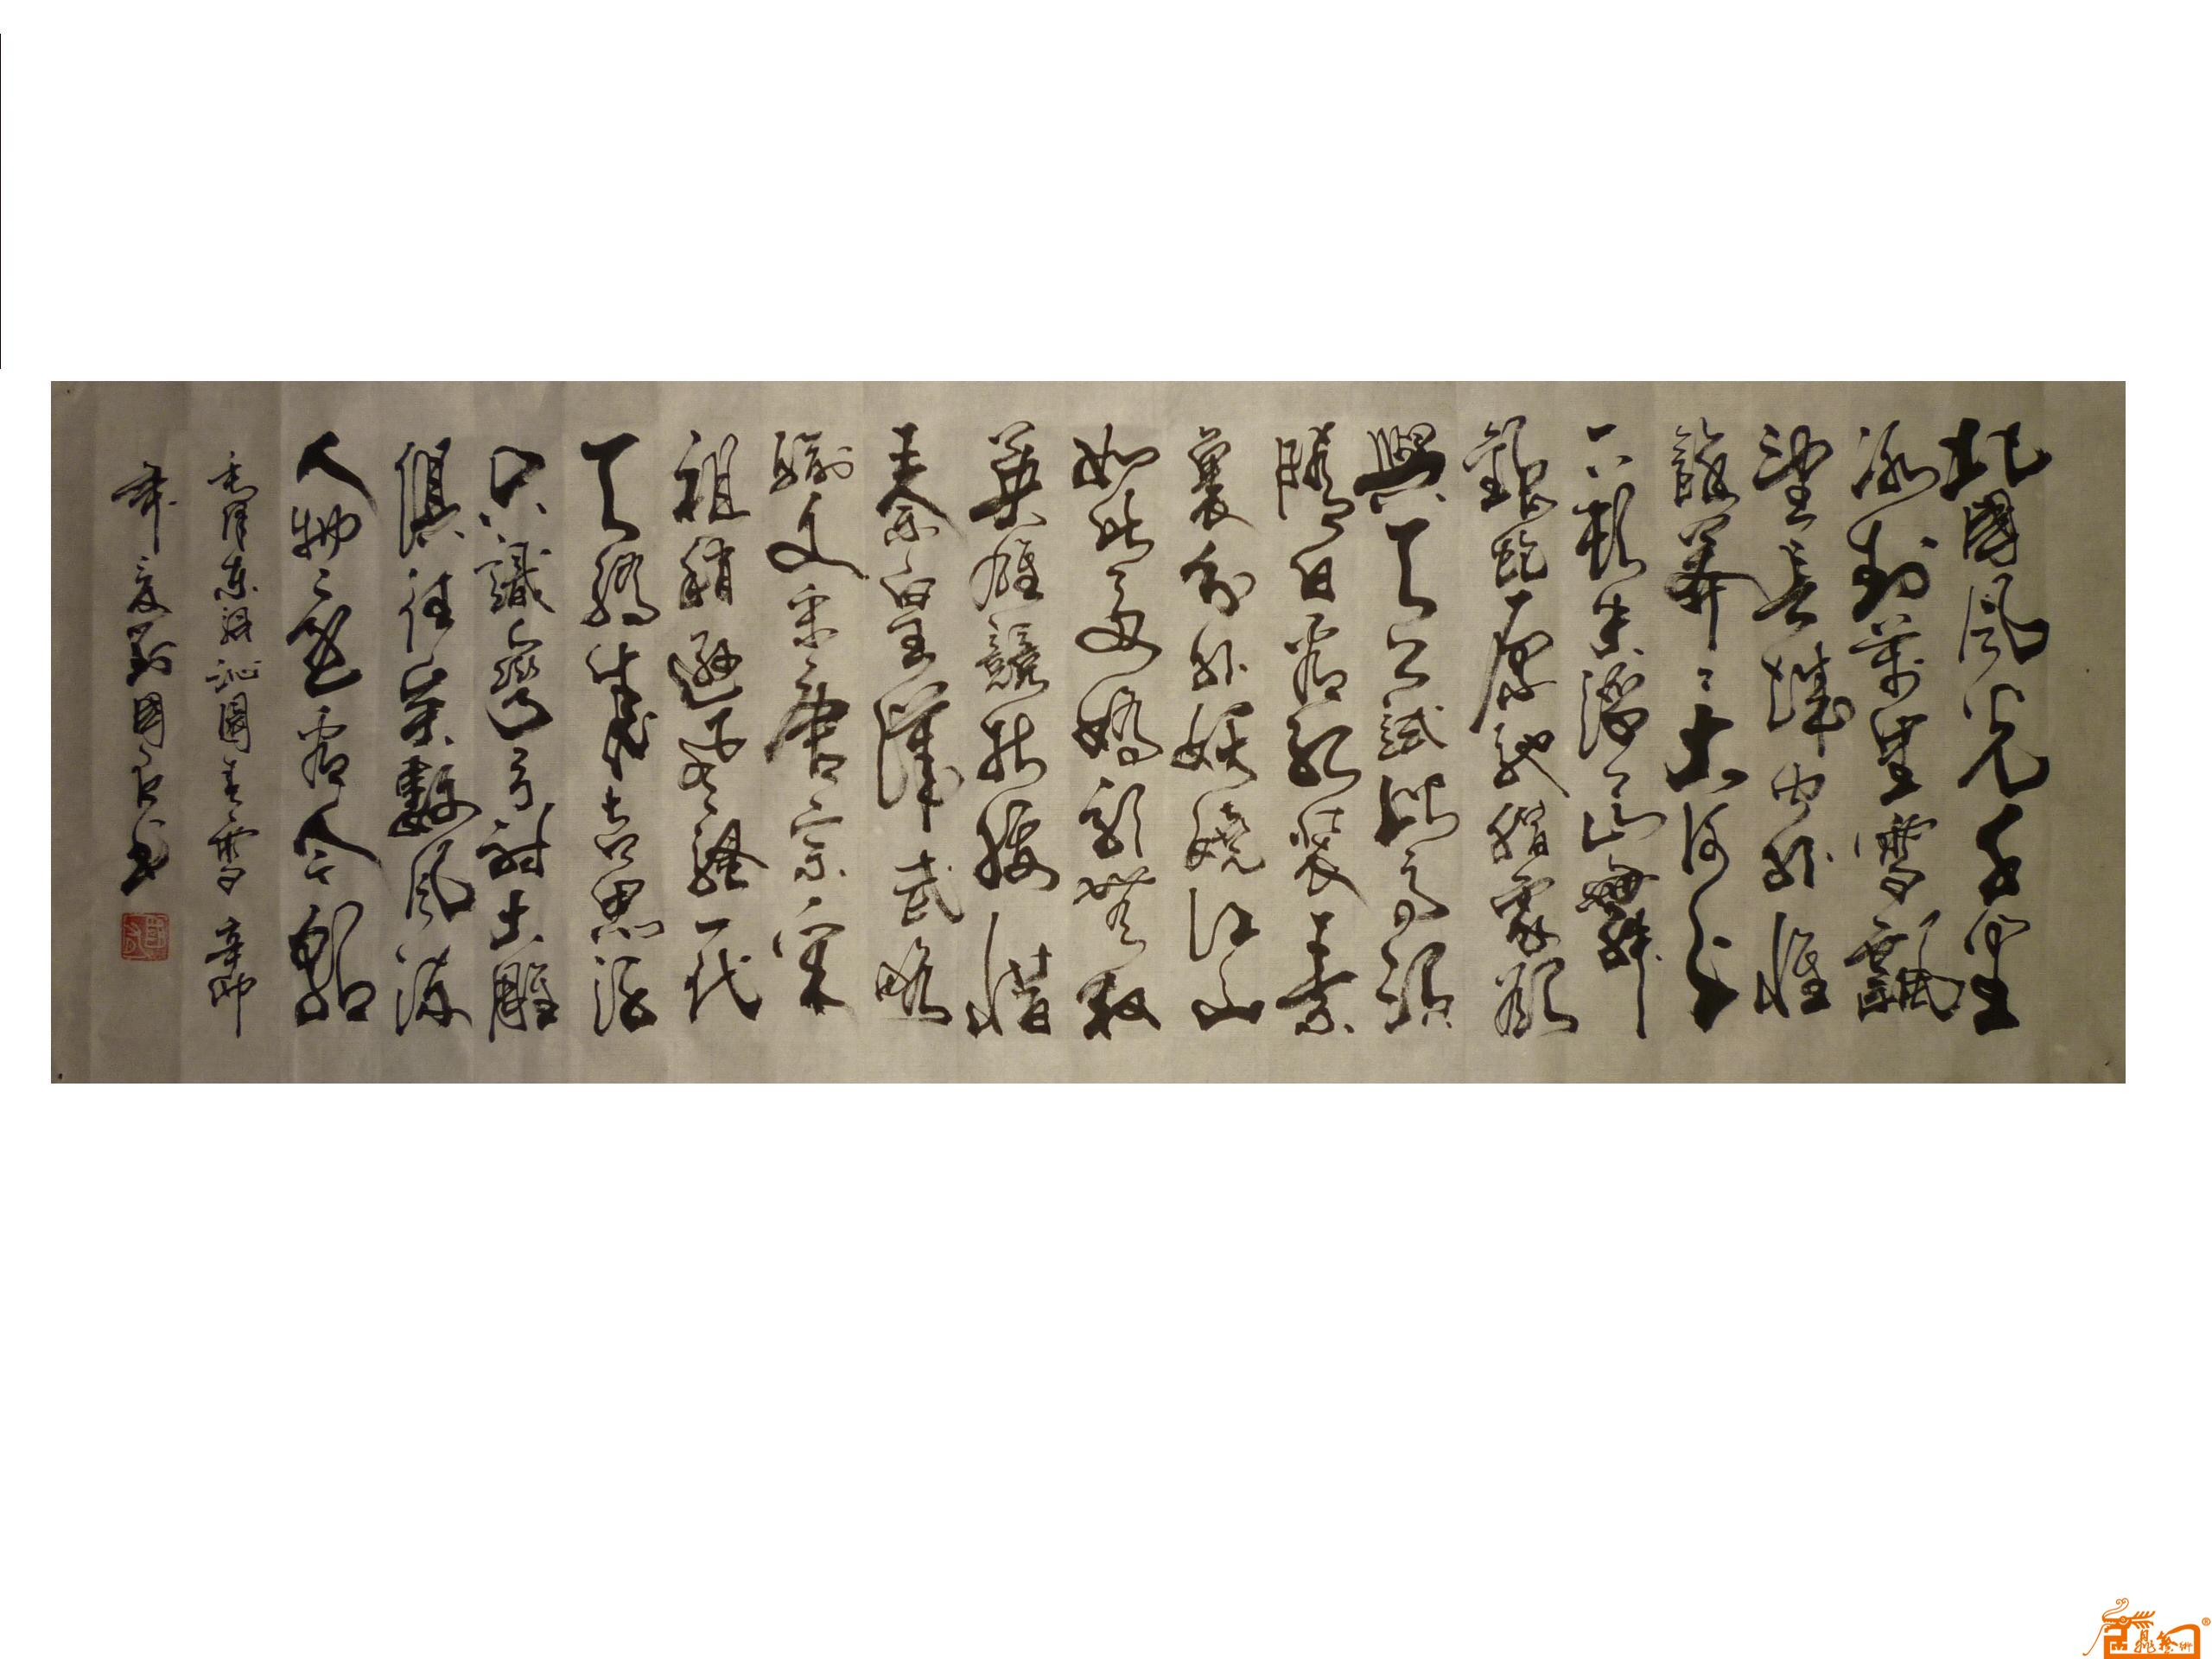 北國風光千里
冰封萬里雪飄
望長城內外惟
餘莽々大河上
下頓失滔々山舞
銀蛇原馳蠟象欲
與天公試比高須
晴日看紅裝素
裹分外妖嬈江山
如此多嬌引無數
英雄競折腰惜
秦皇漢武略
輸文采唐宗宋
祖稍遜風騷一代
天驕成吉思汗
只識彎弓射大雕
俱往矣數風流
人物還看今朝
毛澤東詞沁園春雪 辛卯
年夏劉國書